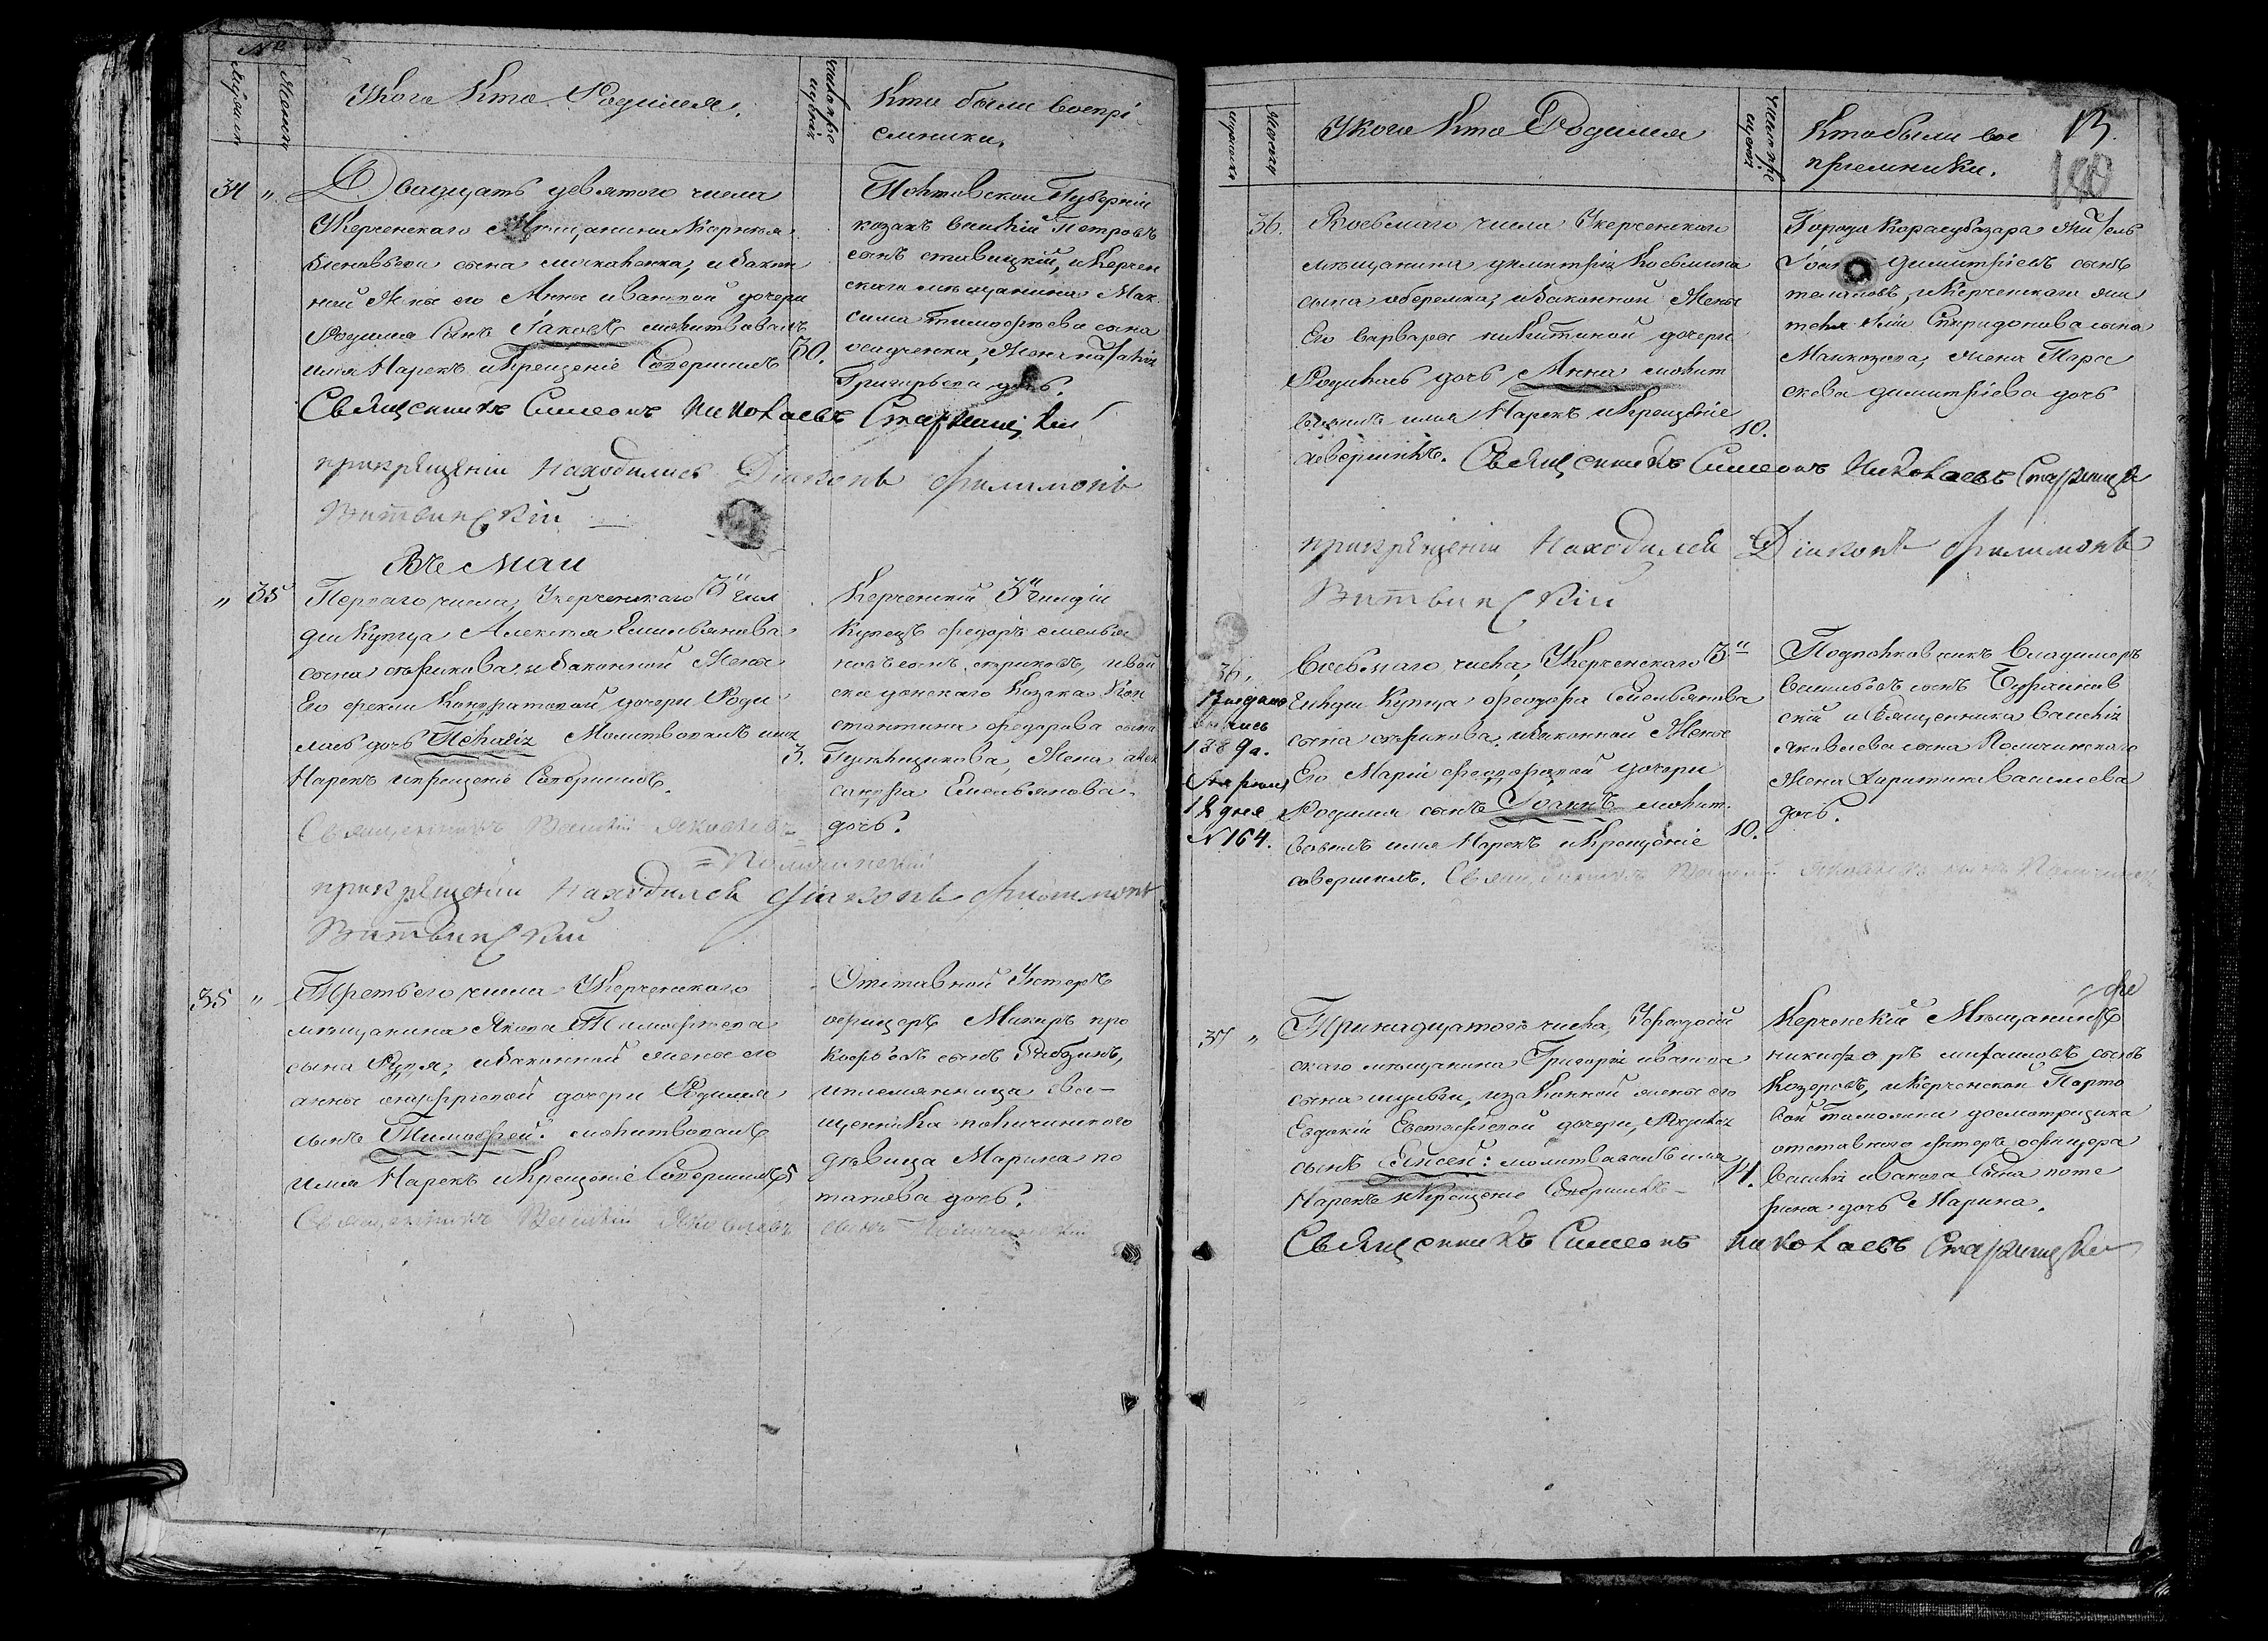 №
Мужеска Женска
У Кого Кто Родился.
Число крещенія
Кто были воспрі
емники.
34 "
Двадцать девятого числа
У Керченского Мещанина Корнея
Зеновьева сына и закон
ной Жены его Анны Ивановой дочери
Родился Сынъ Іаковъ молитвовалъ
имя Нарекъ и Крещеніе Совершилъ
30.
Полтавской Губерніи
козакъ Василій Петровъ
сынъ ставицкій, и Керчен
скаго мещанина Мак
сима Тимофеева сына
осадченка, Жена Наталія
Григорьева дочь.
Священникъ Симеонъ Николаевъ Старжицкій
при крещеніи Находились Діаконъ Филимонъ
Витвинскій
Въ Маи
" 35
Перваго числа, У керченскаго 3й Гил
діи Купца Алексея Емельянова
сына скрикова, и законной Жены
Его Феклы Кондратовой дочери Роди
лась дочь Пелагія Молитвовалъ имя
Нарекъ и крещеніе Совершилъ.
3.
Керченскій 3й гилдіи
Купецъ Федоръ емелья
новъ сынъ скриковъ, и вой
ска донскаго Козака Кон
стантина Федорова сына
Жена алек
сандра Емельянова
дочь.
Священникъ Василій Яковлевъ
= Поличинскій
при крещеніи Находился діаконъ Филимонъ
Витвинскій
35 "
Третьего числа У Керченскаго
мещанина Якова Тимофеева
сына Рудя, и законной жены его
анны онуфріевой дочери Родился
сынъ Тимофей: молитвовалъ
имя Нарекъ и Крещеніе Совершилъ
5
Отставной Унтеръ
офицеръ Макаръ про
кофьевъ сынъ Рябзинъ,
и племянница свя-
щенника поличинского
девица Марина по
тапова дочь.
Священникъ Василій Яковлевъ сынъ Поличинскій
Мужеска Женска
У кого Кто Родился
Число крещенія
Кто были вос
пріемники.
13.
180
36.
Восьмаго числа У керченского
мещанина димитрія Косьмина
сына оберемка, и законной Жены
Его варвары никитиной дочери
Родилась дочь Анна молит
вовалъ имя Нарекъ и Крещеніе
совершилъ.
10.
Города Карасубазара Жи/тель
Іоан димитріевъ сынъ
и Керченского жи
теля Спиридонова сына
жена Пара
скева димитріева дочь
Священникъ Симеонъ Николаевъ Старжицкі
при крещеніи Находился Діаконъ Филимонъ
Витвинскій
36.
№ 164.
Восьмаго числа, У Керченскаго 3й
Гилдіи Купца Феодора Емельянова
сына скрикова, и законной Жены
Его Маріи Феодоровой дочери
Родился сынъ Іоаннъ молит
вовалъ имя Нарекъ и Крещеніе
совершилъ.
10.
Подполковникъ Владимеръ
васильевъ сынъ
скій и Священника Василія
Яковлева сына Поличинскаго
Жена Харитина Васильева
дочь.
Священникъ Василій Яковлевъ сынъ Поличинск
37 "
Тринадцатого числа, У феодосій
скаго мещанина Григорія иванова
сына шульги, и законной жены его
Евдокіи Евстафіевой дочери, Родился
сынъ Елисей: молитвовалъ имя
Нарекъ и Крещеніе Совершилъ
14.
Керченскій Мещанинъ
никифоръ сынъ
Козыревъ, и Керченской Порто
вой таможни досмотрщика
отставного унтеръ офицера
Василія иванова Сына поте
рина дочь Марина.
Священникъ Симеонъ Николаевъ Старжицкій